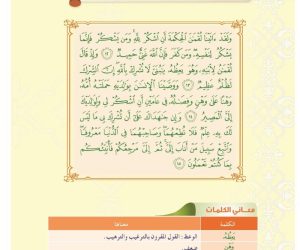 وَلَقَدْ ءَاتَيْنَا لُقْمَٰنَ ٱلْحِكْمَةَ أَنِ ٱشْكُرْ لِلَّهِ وَمَن يَشْكُرْ فَإِنَّمَا
يَشْكُرُ لِنَفْسِهِۦ وَمَن كَفَرَ فَإِنَّ ٱللَّهَ غَنِىٌّ حَمِيدٌ ١٢ وَإِذْ قَالَ
لُقْمَٰنُ لِٱبْنِهِۦ وَهُوَ يَعِظُهُۥ يَٰبُنَىَّ لَا تُشْرِكْ بِٱللَّهِ إِنَّ ٱلشِّرْكَ
لَظُلْمٌ عَظِيمٌ ١٣ وَوَصَّيْنَا ٱلْإِنسَٰنَ بِوَٰلِدَيْهِ حَمَلَتْهُ أُمُّهُۥ
وَهْنًا عَلَىٰ وَهْنٍ وَفِصَٰلُهُۥ فِى عَامَيْنِ أَنِ ٱشْكُرْ لِى وَلِوَٰلِدَيْكَ
إِلَىَّ ٱلْمَصِيرُ ١٤ وَإِن جَٰهَدَاكَ عَلَىٰٓ أَن تُشْرِكَ بِى مَا لَيْسَ
لَكَ بِهِۦ عِلْمٌ فَلَا تُطِعْهُمَا وَصَاحِبْهُمَا فِى ٱلدُّنْيَا مَعْرُوفًا
وَٱتَّبِعْ سَبِيلَ مَنْ أَنَابَ إِلَىَّ ثُمَّ إِلَىَّ مَرْجِعُكُمْ فَأُنَبِّئُكُم
بِمَا كُنتُمْ تَعْمَلُونَ ١٥
معاني الكلمات
الكلمة معناها
يَعِظُهُ الوعظ: القول المقرون بالترغيب والترهيب.
وَهْنٍ ضعف.